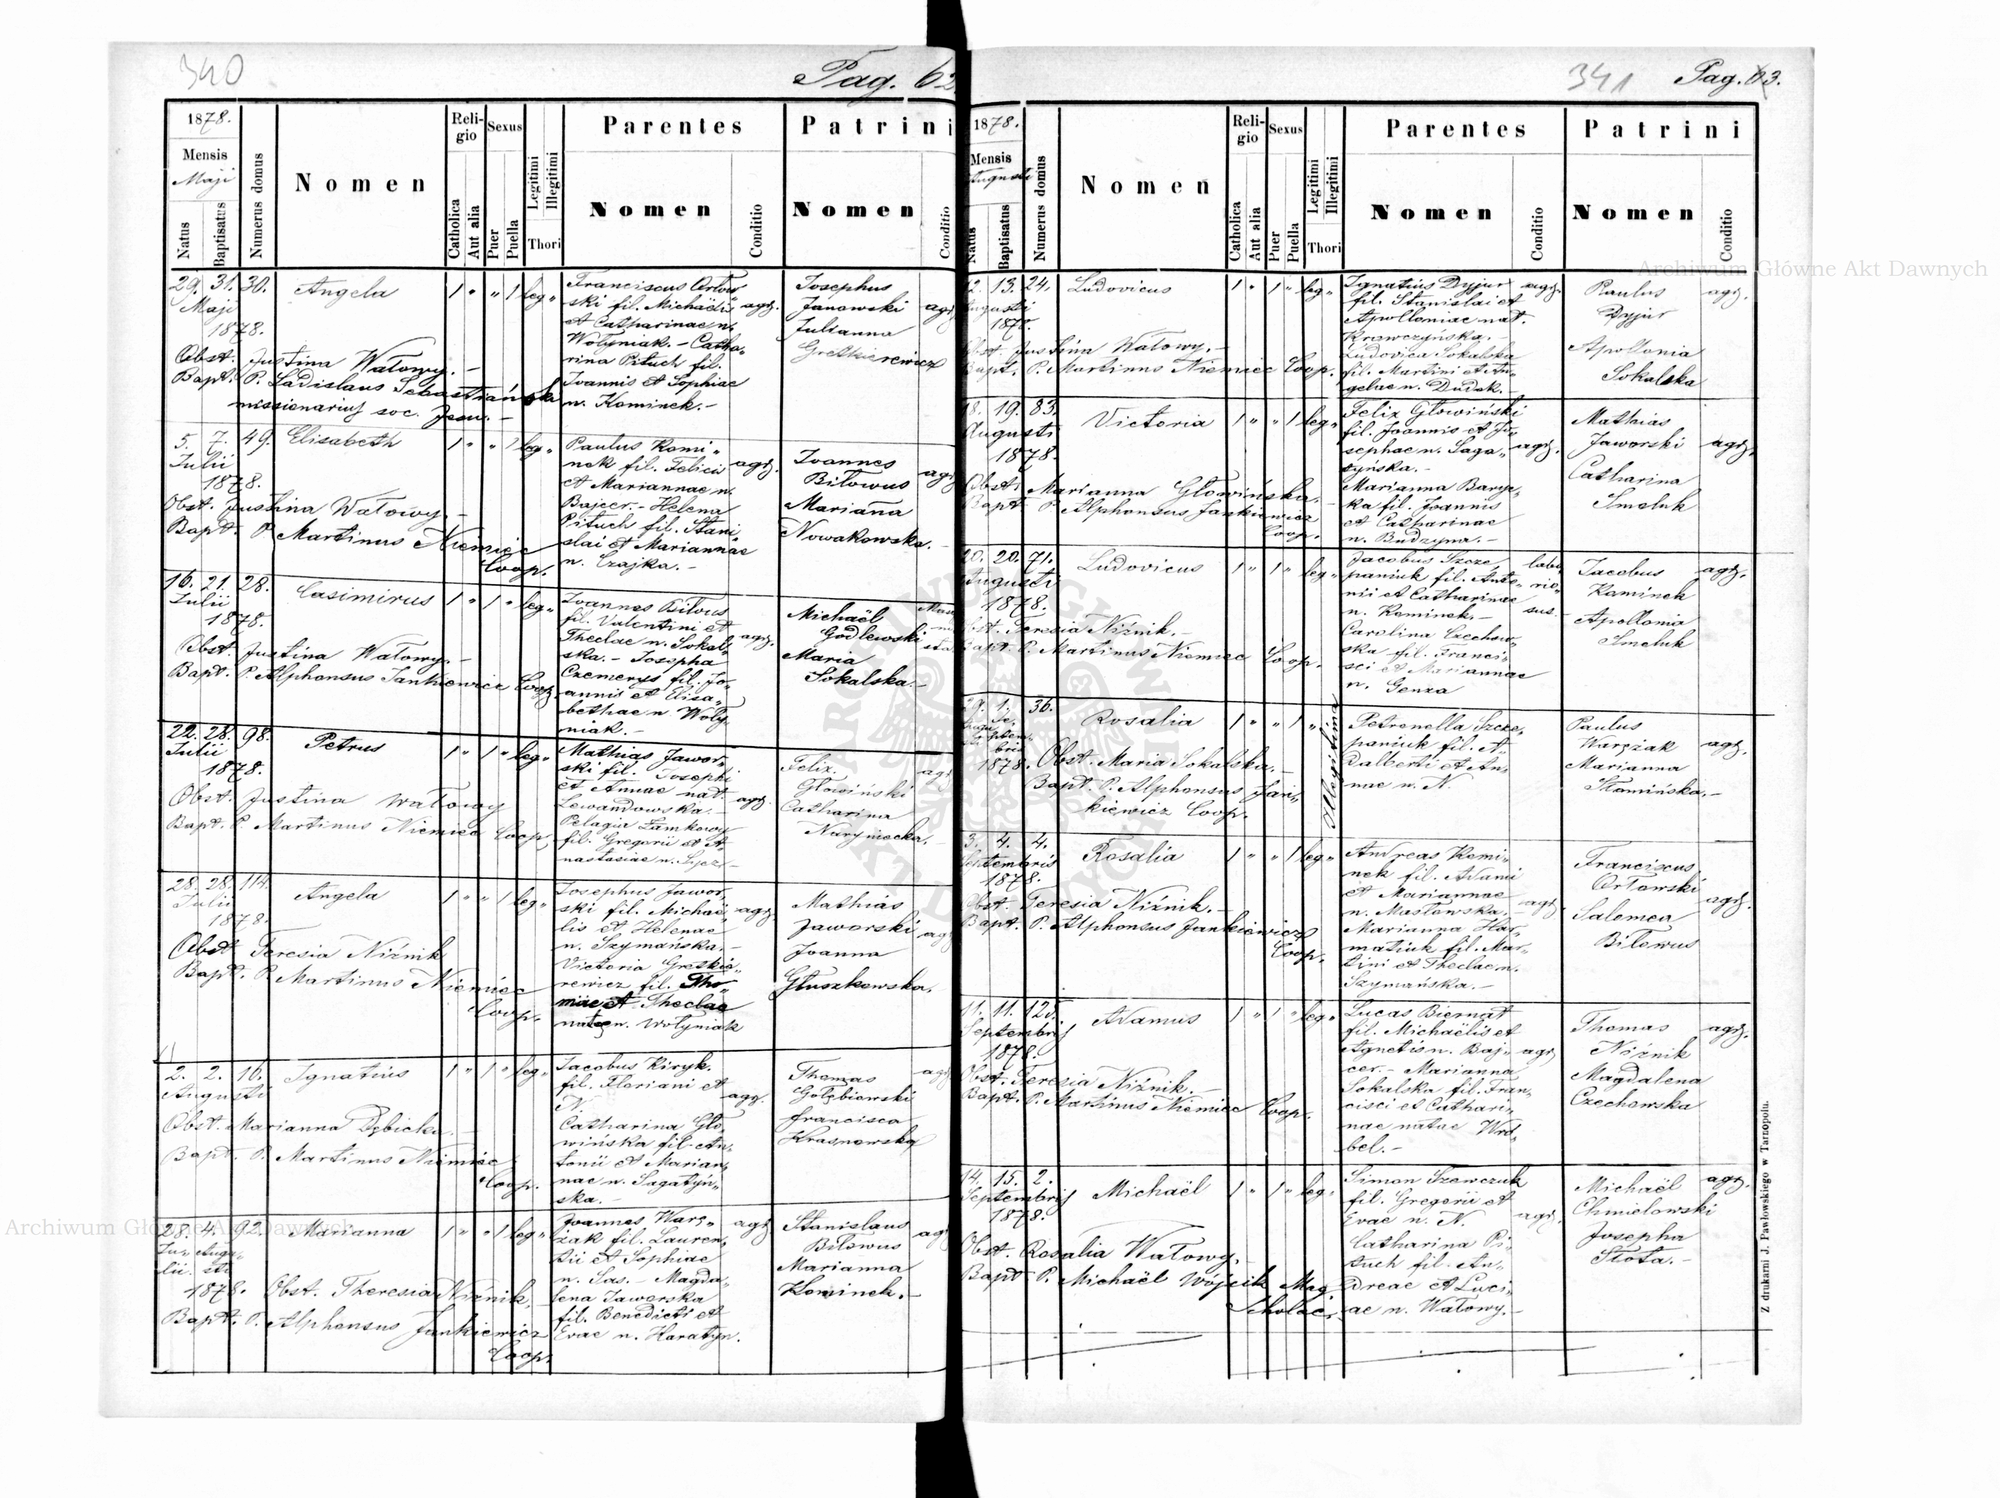 340
Pag. 62
1878.
Mensis
Maji
Natus
Baptisatus
Numerus domus
Nomen
Religio
Catholica
Aut alia
Sexus
Puer
Puella
Legitimi
Illegitimi
Thori
Parentes
Nomen
Conditio
Patrini
Nomen
Conditio
29. 31. 30. Angela 1 " " 1 leg"
Maji
1878.
Obst. Justina Watowy. -
Bapt. P. Ladislaus Sebastiański
missionarius soc. Jesu. -
Franciscus Orłow
ski fil. Michaëlis agr.
et Catharinae n.
Wołyniak. - Catha-
rina Pituch fil.
Joannis et Sophiae
n. Kominek. -
Josephus
Janowski agr
Julianna
Gretkierewicz
5. 7. 49. Elisabeth 1 " " 1 leg"
Julii
1878.
Obst. Justina Watowy. -
Bapt. P. Martinus Niemiec
Coop.
Paulus Komi"
nek fil. Felicis agr.
et Mariannae n.
Bajcer. - Helena
Pituch fil. Stani
slai et Mariannae
n. Czajka. -
Joannes
Biłowus agr
Mariana
Nowakowska. -
16. 21. 28. Casimirus 1 " 1 " leg"
Julii
1878.
Obst. Justina Watowy. -
Bapt. P. Alphonsus Jankiewicz Coop.
Joannes Biłous
fil. Valentini et
Theclae n. Sokal agr.
ska. - Josepha
Czemerys fil. Jo-
annis et Elisa-
bethae n Woły
niak. -
Michaël
Godlewski
Maria
Sokalska. -
22. 28. 98. Petrus 1 " 1 " leg"
Julii
1878.
Obst. Justina Watowy
Bapt. P. Martinus Niemiec Coop.
Mathias Jawor-
ski fil. Josephi
et Annae nat. agr.
Lewandowska. -
Pelagia Zamkowy
fil. Gregorii et A-
nastasiae n.
Felix agr
Głowiński
Catharina
Naryniecka. -
28. 28. 114. Angela 1 " " 1 leg"
Julii
1878.
Obst Teresia Niźnik
Bapt. P. Martinus Niemiec
Coop.
Josephus Jawor,
ski fil. Michaë agr.
lis et Helenae
n. Szymańska. -
Victoria Gretkie-
rewicz fil. Tho-
mae et Theclae
natae n. Wołyniak
Mathias
Jaworski agr
Joanna
Głuszkowska.
2. 2. 16. Ignatius 1 " 1 " leg"
Augusti
Obst. Marianna Dębicka. -
Bapt. P. Martinus Niemiec
Coop.
Jacobus Kiryk.
fil. Floriani et
N. agr.
Catharina Gło-
wińska fil. An-
tonii et Marian,
nae n. Sagatyń-
ska. -
Thomas agr
Gołębiewski
Francisca
Krasnowska
28. 4. 92. Marianna 1 " " 1 leg"
Ju- Augu-
lii. sti
1878. Obst. Theresia Niźnik, -
Bapt. P. Alphonsus Jankiewicz
Coop.
Joannes Warż- agr.
żak fil. Lauren-
tii et Sophiae
n. Sas. - Magda-
lena Jaworska
fil. Benedicti et
Evae n. Haratyn.
Stanislaus
Biłowus agr
Marianna
Kominek. -
341
Pag. 63.
1878.
Mensis
Augusti
Natus
Baptisatus
Numerus domus
Nomen
Religio
Catholica
Aut alia
Sexus
Puer
Puella
Legitimi
Illegitimi
Thori
Parentes
Nomen
Conditio
Patrini
Nomen
Conditio
12. 13. 24. Ludovicus 1 " 1 " leg"
Augusti
1878.
Obst. Justina Watowy. -
Bapt. P. Martinus Niemiec Coop.
Ignatius Dyjur agr.
fil. Stanislai et
Apolloniae nat.
Krawczyńska. -
Ludovica Sokalska
fil. Martini et An-
gelae n. Dudek. -
Paulus agr.
Dyjur
Apollonia
Sokalska
18. 19. 83. Victoria 1 " " 1 leg"
Augusti
1878.
Obst. Marianna Głowińska. -
Bapt P. Alphonsus Jankiewicz
Coop.
Felix Głowiński
fil. Joannis et Jo-
sephae n. Saga- agr.
tyńska. -
Marianna Baryc-
ka fil. Joannis
et Catharinae
n. Budzyna. -
Mathias
Jaworski agr.
Catharina
Smoluk
20. 20. 71. Ludovicus 1 " 1 " leg"
Augusti
1878.
Obst. Teresia Niźnik. -
Bapt. P. Martinus Niemiec Coop.
Jacobus Szcze, labo
paniuk fil. Anto- rio-
nii et Catharinae sus. -
n. Kominek. -
Carolina Czechow-
ska fil. Franci-
sci et Mariannae
n. Genza
Jacobus agr.
Kominek
Apollonia
Smoluk
29. 1. 36. Rosalia 1 " " 1 " Illegitima
1878. Obst. Maria Sokalska. -
Bapt. P. Alphonsus Jan-
kiewicz Coop.
Petronella Szcze-
paniuk fil. A-
dalberti et An-
nae n. N.
Paulus
Warżżak agr.
Marianna
Słomińska. -
3. 4. 4. Rosalia 1 " " 1 leg"
Septembris
1878.
Obst. Teresia Niźnik. -
Bapt. P. Alphonsus Jankiewicz
Coop.
Andreas Komi-
nek fil. Adami
et Mariannae
n. Masłowska. - agr.
Marianna Har-
matiuk fil. Mar-
tini et Theclae n.
Szymańska. -
Franciscus
Orłowski
Salomea agr.
Biłowus
11. 11. 125. Adamus 1 " 1 " leg"
Septembris
1878.
Obst. Teresia Niźnik. -
Bapt. P. Martinus Niemiec Coop.
Lucas Biernat
fil. Michaëlis et
Agnetis n. Baj- agr.
cer. - Marianna
Sokalska fil. Fran-
cisci et Cathari-
nae natae Wró-
bel. -
Thomas agr.
Niźnik
Magdalena
Czechowska
14. 15. 2. Michaël 1 " 1 " leg"
Septembris
1878.
Obst. Rosalia Watowy. -
Bapt P. Michaël Wójcik Mag.
Scholae.
Simon Szewczuk
fil. Gregorii et
Evae n. N. agr.
Catharina Pi-
tuch fil. An-
dreae et Luci-
ae n. Watowy. -
Michaël agr.
Chmielowski
Josepha
Słota. -
Z drukarni J. Pawłowskiego w Tarnopolu.
Archiwum Główne Akt Dawnych
Archiwum Główne Akt Dawnych
ARCHIWUM GŁÓWNE AKT DAWNYCH